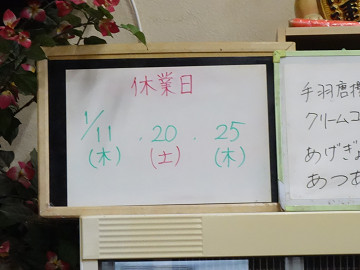 休業日
1/11 . 20 . 25
(木) (土) (木)
手羽唐揚
クリームコ
あげぎょ
あつあ